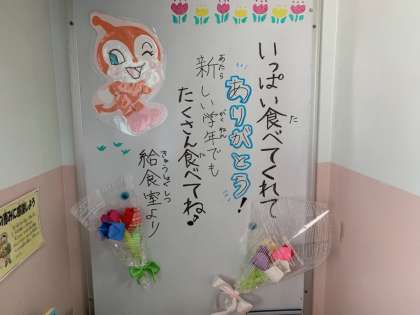 いっぱい食べてくれて
ありがとう!
新しい学年でも
たくさん食べてね♪
給食室より